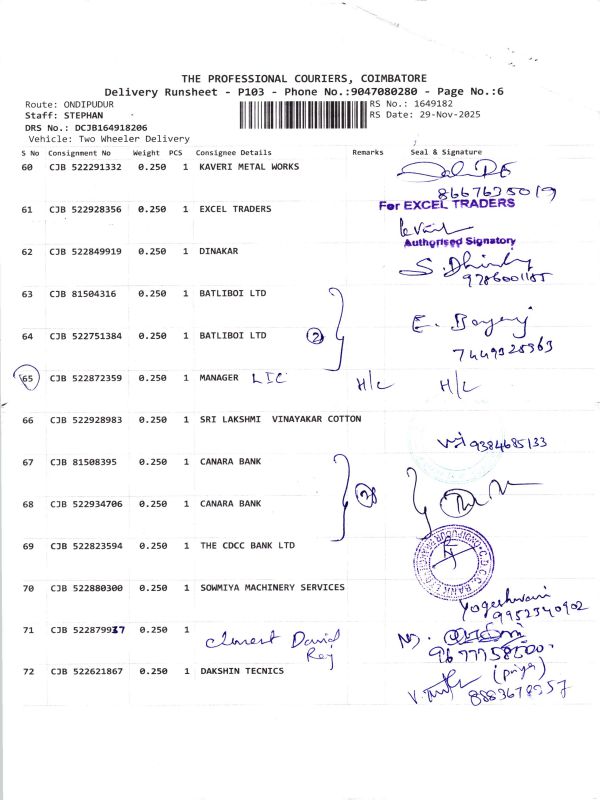 THE PROFESSIONAL COURIERS, COIMBATORE
Delivery Runsheet - P103 - Phone No.:9047080280 - Page No.:6
Route: ONDIPUDUR RS No.: 1649182
Staff: STEPHAN RS Date: 29-Nov-2025
DRS No.: DCJB164918206
Vehicle: Two Wheeler Delivery
S No Consignment No Weight PCS Consignee Details Remarks Seal & Signature
60 CJB 522291332 0.250 1 KAVERI METAL WORKS
8667635019
For EXCEL TRADERS
61 CJB 522928356 0.250 1 EXCEL TRADERS
Authorised Signatory
62 CJB 522849919 0.250 1 DINAKAR
S. Dhinky
9786001185
63 CJB 81504316 0.250 1 BATLIBOI LTD
64 CJB 522751384 0.250 1 BATLIBOI LTD 2 E.
7449328363
65 CJB 522872359 0.250 1 MANAGER LIC H/C H/C
66 CJB 522928983 0.250 1 SRI LAKSHMI VINAYAKAR COTTON
9384685133
67 CJB 81508395 0.250 1 CANARA BANK
68 CJB 522934706 0.250 1 CANARA BANK
69 CJB 522823594 0.250 1 THE CDCC BANK LTD
70 CJB 522880300 0.250 1 SOWMIYA MACHINERY SERVICES
Yogeshwari
9952340902
71 CJB 522879937 0.250 1 David
Rej
9677758500
72 CJB 522621867 0.250 1 DAKSHIN TECNICS (priya)
8883678957